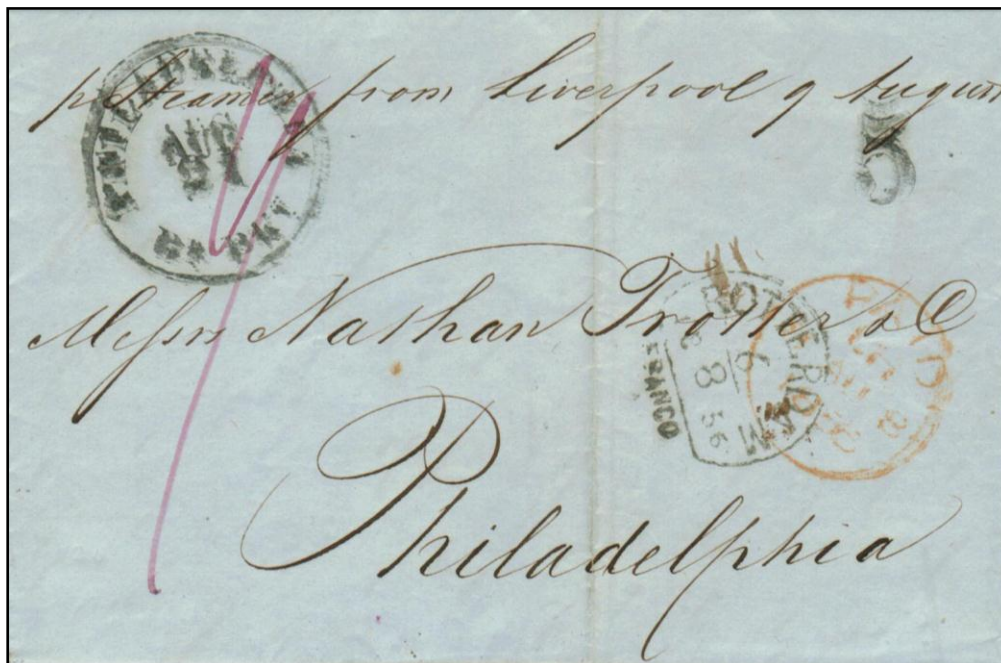 p Steamer from Liverpool 9 August
PHILADELPHIA
AUG
21
5
Messrs Nathan Trotter & Co
ROTTERDAM
6
8
56
FRANCO
Philadelphia